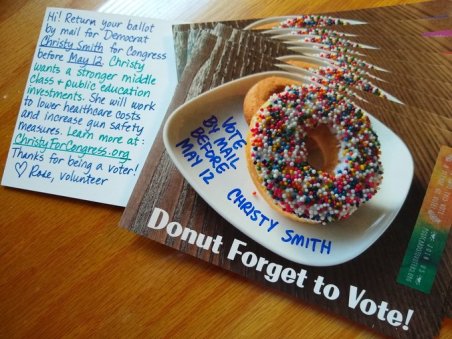 Hi! Return your ballot
by mail for Democrat
Christy Smith for Congress
before May 12. Christy
wants a stronger middle
class + public education
investments. She will work
to lower healthcare costs
and increase gun safety
measures. Learn more at:
ChristyForCongress.org
Thanks for being a voter!
♡ Rose, volunteer
VOTE
BY MAIL
BEFORE
MAY 12
CHRISTY SMITH
Donut Forget to Vote!